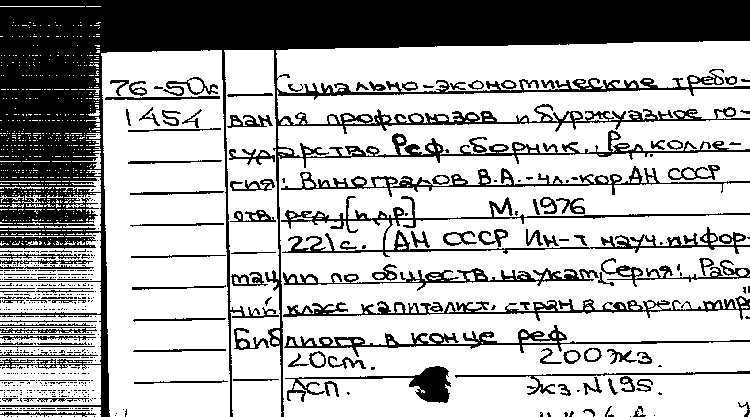 76-50к Социально-экономические требо-
1454 вания профсоюзов и буржуазное го-
сударство. Реф. сборник. Редколле-
гия: Виноградов В.А.-чл.-кор.АН СССР,
отв. ред.,[и др.]. М., 1976
221с. (АН СССР. Ин-т науч.инфор-
мации по обществ.наукам. Серия: „Рабо-
чий класс капиталист. стран в соврем.мире"
Библиогр. в конце реф.
20см. 200экз.
ДСП. Экз.N195.